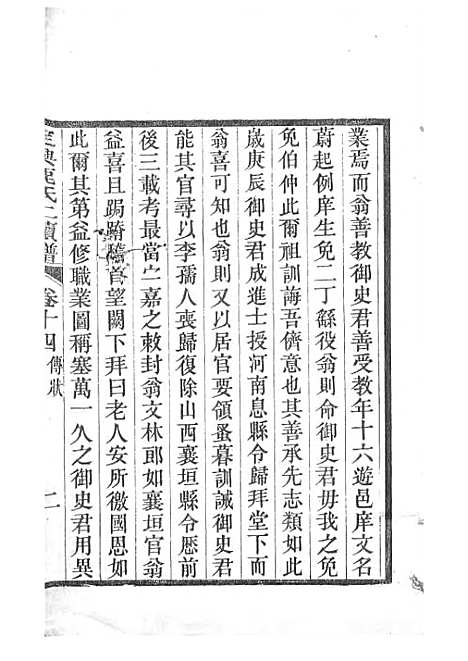 業焉而翁善教御史君善受教年十六遊邑庠文名
蔚起例庠生免二丁繇役翁則命御史君毋我之免
免伯仲此爾祖訓誨吾儕意也其善承先志類如此
歲庚辰御史君成進士授河南息縣令歸拜堂下而
翁喜可知也翁則又以居官要領蚤暮訓誡御史君
能其官尋以李孺人喪歸復除山西襄垣縣令歷前
後三載考最當亠嘉之敕封翁文林郎如襄垣官翁
益喜且跼蹐稽首望闕下拜曰老人安所徼國恩如
此爾其第益修職業圖稱塞萬一久之御史君用異
定興鹿氏二續譜 卷十四 傳狀 二